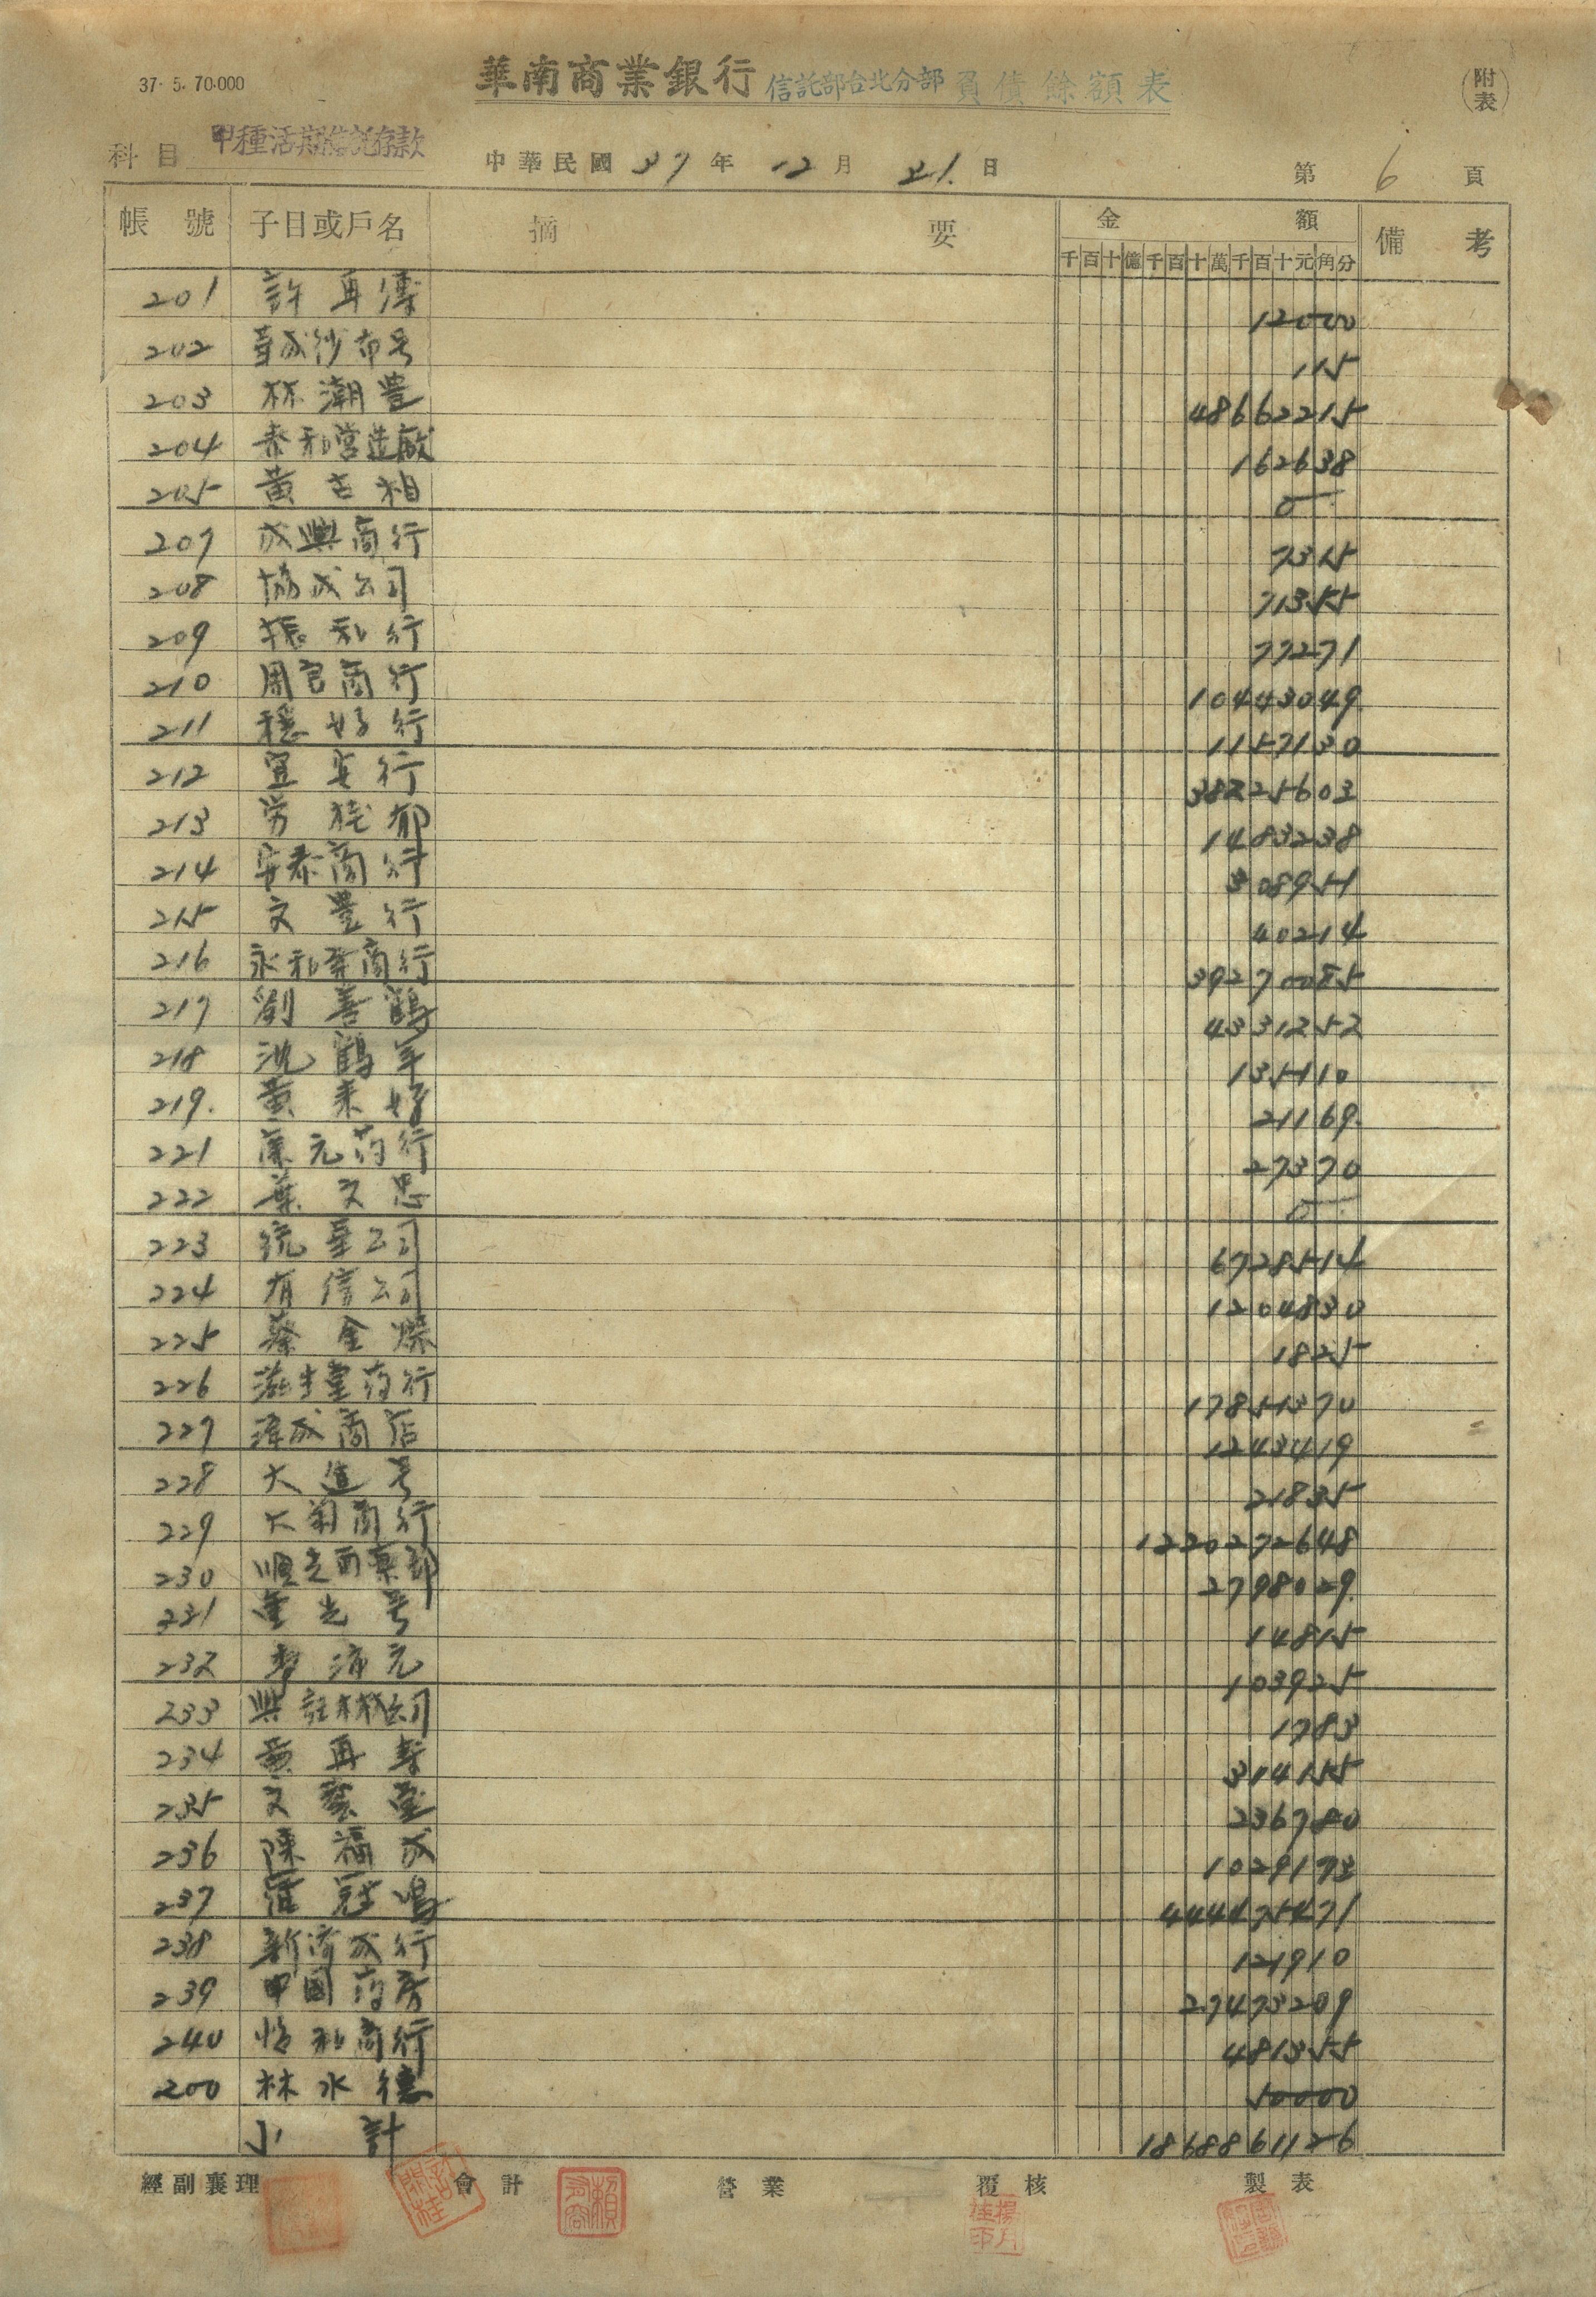 37. 5. 70.000
華南商業銀行 信託部台北分部 負債餘額表 (附表)
科目 甲種活期信託存款 中華民國 37 年 12 月 21. 日 第 6 頁
帳號 子目或戶名 摘要 金額 備考
千百十億千百十萬千百十元角分
201 許再傳 12000
202 華成紗布号 115
203 林潮豊 48662215
204 泰和營造廠 162638
205 黃吉相 0
207 成興商行 7315
208 協成公司 71355
209 振和行 77271
210 周官商行 10443049
211 穩好行 1157130
212 宜安行 38225603
213 労 郁 1483238
214 安泰商行 308951
215 文豊行 40214
216 永和 商行 39270085
217 劉善鶴 4331252
218 沈鶴年 135110
219. 黃来好 21169
221 元药行 27370
222 葉文忠 0
223 統華公司 6728514
224 有信公司 1204830
225 蔡金燦 1825
226 滋生堂药行 17851370
227 津成商店 1243419
228 大進号 21835
229 大菊商行 1220272648
230 順光西藥部 2798029
231 重光号 14815
232 李沛元 103925
233 興 公司 1783
234 黃再寿 314155
235 文藝堂 236780
236 陳福成 1029173
237 冠鳴 444475471
238 新濟成行 121910
239 中國药房 27473209
240 怡和商行 481355
200 林水德 50000
小計 1868861126
經副襄理 會計 營業 覆核 製表